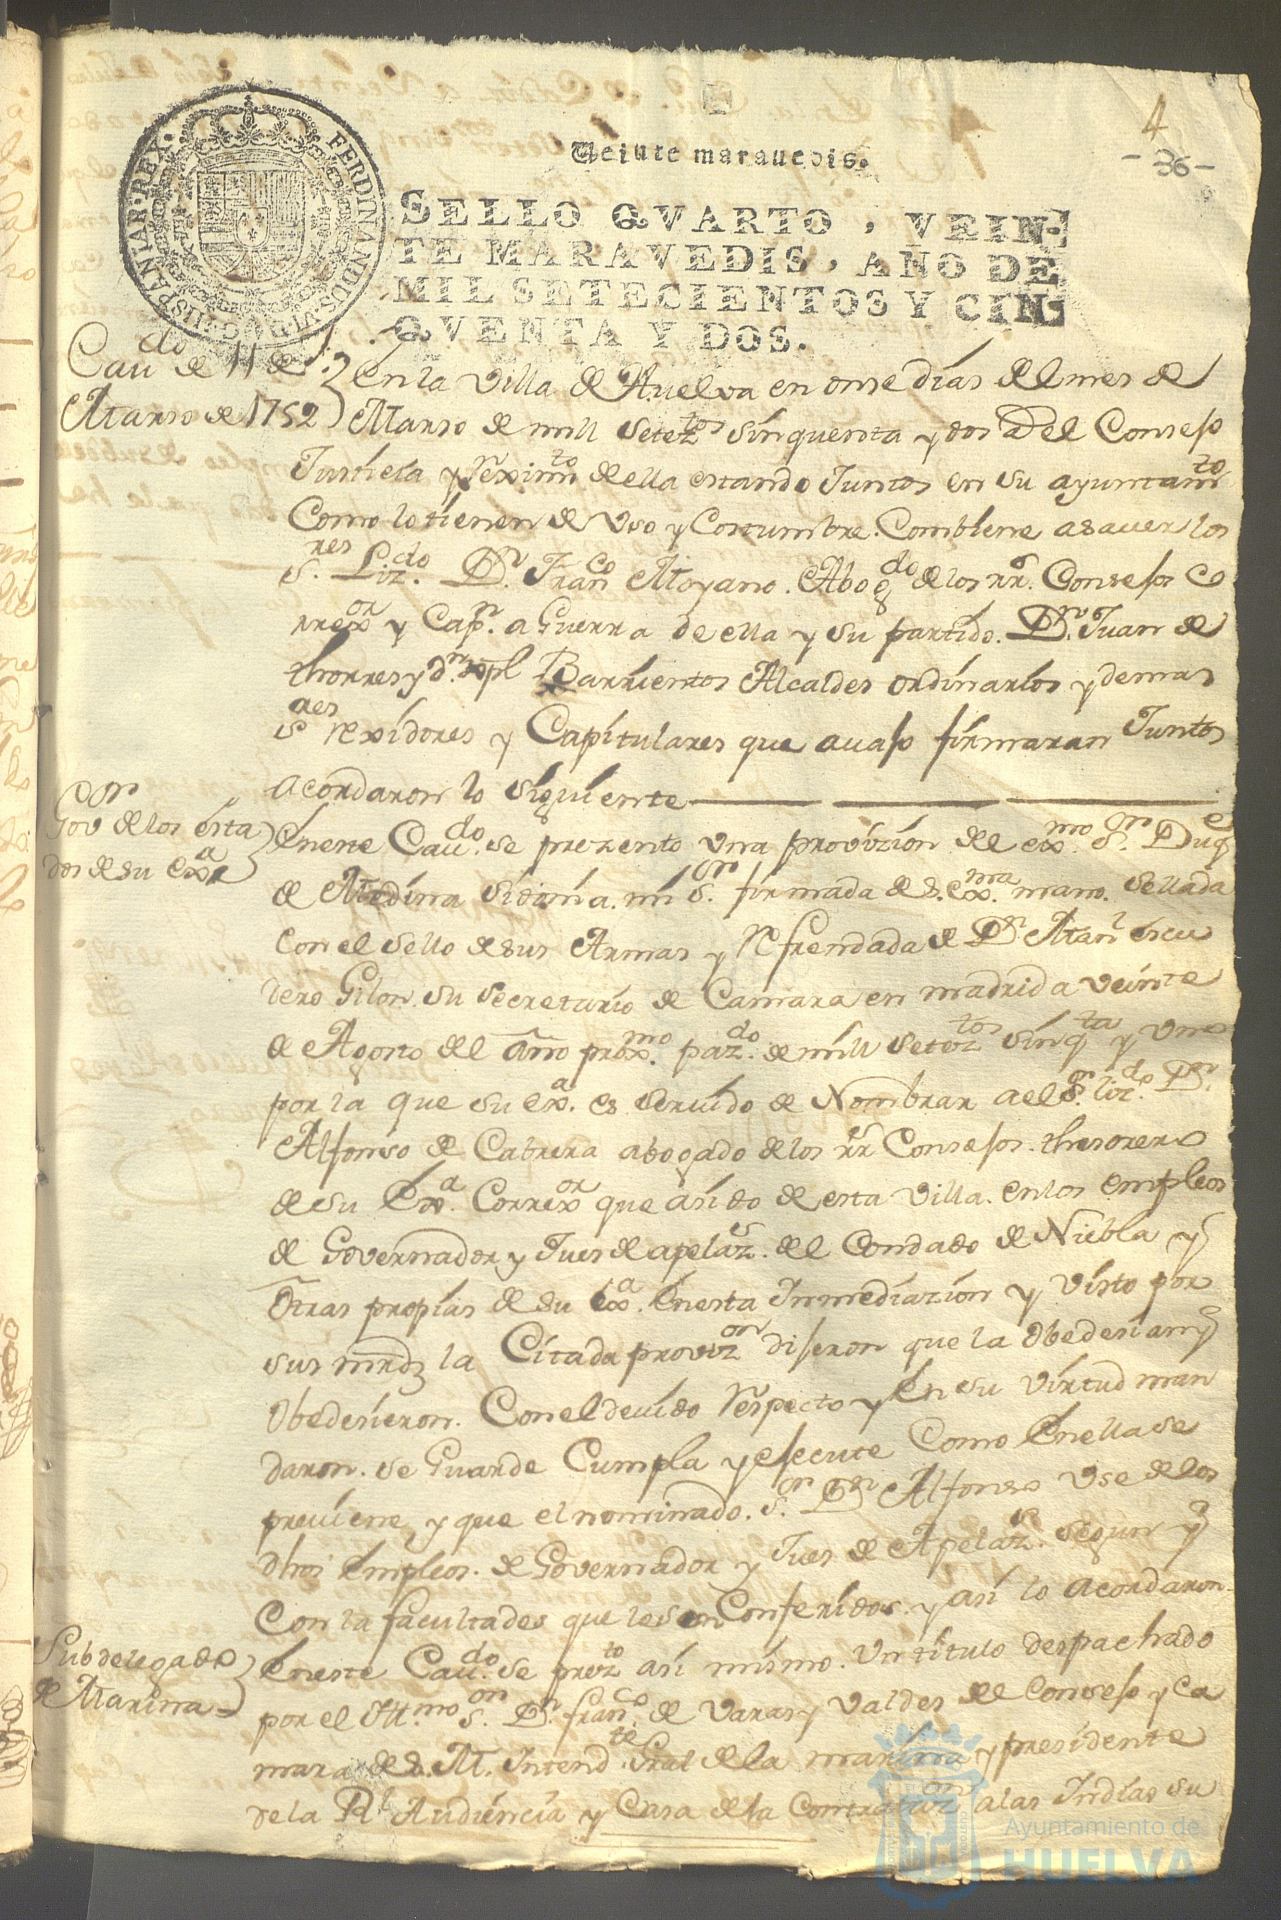 4
- 36 -
Veinte marauedis.
SELLO QVARTO, VEIN-
TE MARAVEDIS, AÑO DE
MIL SETECIENTOS Y CIN-
QVENTA Y DOS.
FERDINANDUS VI D.G. HISPANIAR REX.
Caudo de 11 de
Marzo de 1752
En la Villa de Huelva en onse dias del mes de
Marzo de mill setez.tos sinquenta y dos a el Consejo
Justicia y Reximto de ella estando Juntos en su ayuntamto
Como lo tienen de Vso y Costumbre. Combiene asauer los
S.res Liz.do D.n Fran.co Moyano. Abog.do de los rr.s Consejos Co
rrex.or y Cap.n a Guerra de ella y su partido. D.n Juan de
thorres y d.n Barrientos Alcaldes ordinarios y demas
S.res rexidores y Capitulares que auajo firmaran Juntos
acordaron lo siguiente
Gov.or de los esta
dos de su Ex.a
En este Cau.do se prezento una provizion de el ex.mo S.or Duq.e
de Medina Sidonia. mi S.or firmada de s. Ex.ma mano. sellada
con el sello de sus Armas y Refrendada de D.n Man.l escu
dero Gilon. su secretario de Camara en madrid a veinte
de Agosto del año prox.mo paz.do de mill setez.tos sinq.ta y uno
por la que su Ex.a es seruido de Nombrar a el S.or liz.do D.n
Alfonso de Cabrera abogado de los rr.s Consejos. thesorero
de su Ex.a Correx.or que a sido de esta Villa. en los empleos
de Governador y Jues de apelaz.es del Condado de Niebla y
Otras propias de su Ex.a En esta Inmediazion y Visto por
sus mrds la Citada proviz.on dijeron que la Obedesian y
Obedesieron. Con el deuido Respecto y en su Virtud man
daron. se Guarde Cumpla y ejecute Como En ella se
preuiene y que el nominado. S.or D.n Alfonso Vse de los
dhos Empleos. de Governador y Jues de Apelaz.es segun y
Con la facultades que le son Conferidos. y asi lo acordaron.
Subdelegado
de Marina
En este Cau.do se prez.to asi mismo. Un titulo despachado
por el Ill.mo S.or D.n fran.co de Varas y Valdes del Consejo y Ca
mara de S. M. Intend.te Gral de la marina y presidente
de la R.l Audiencia y Casa de la Contrataz.on a las Indias su
Ayuntamiento de
HUELVA